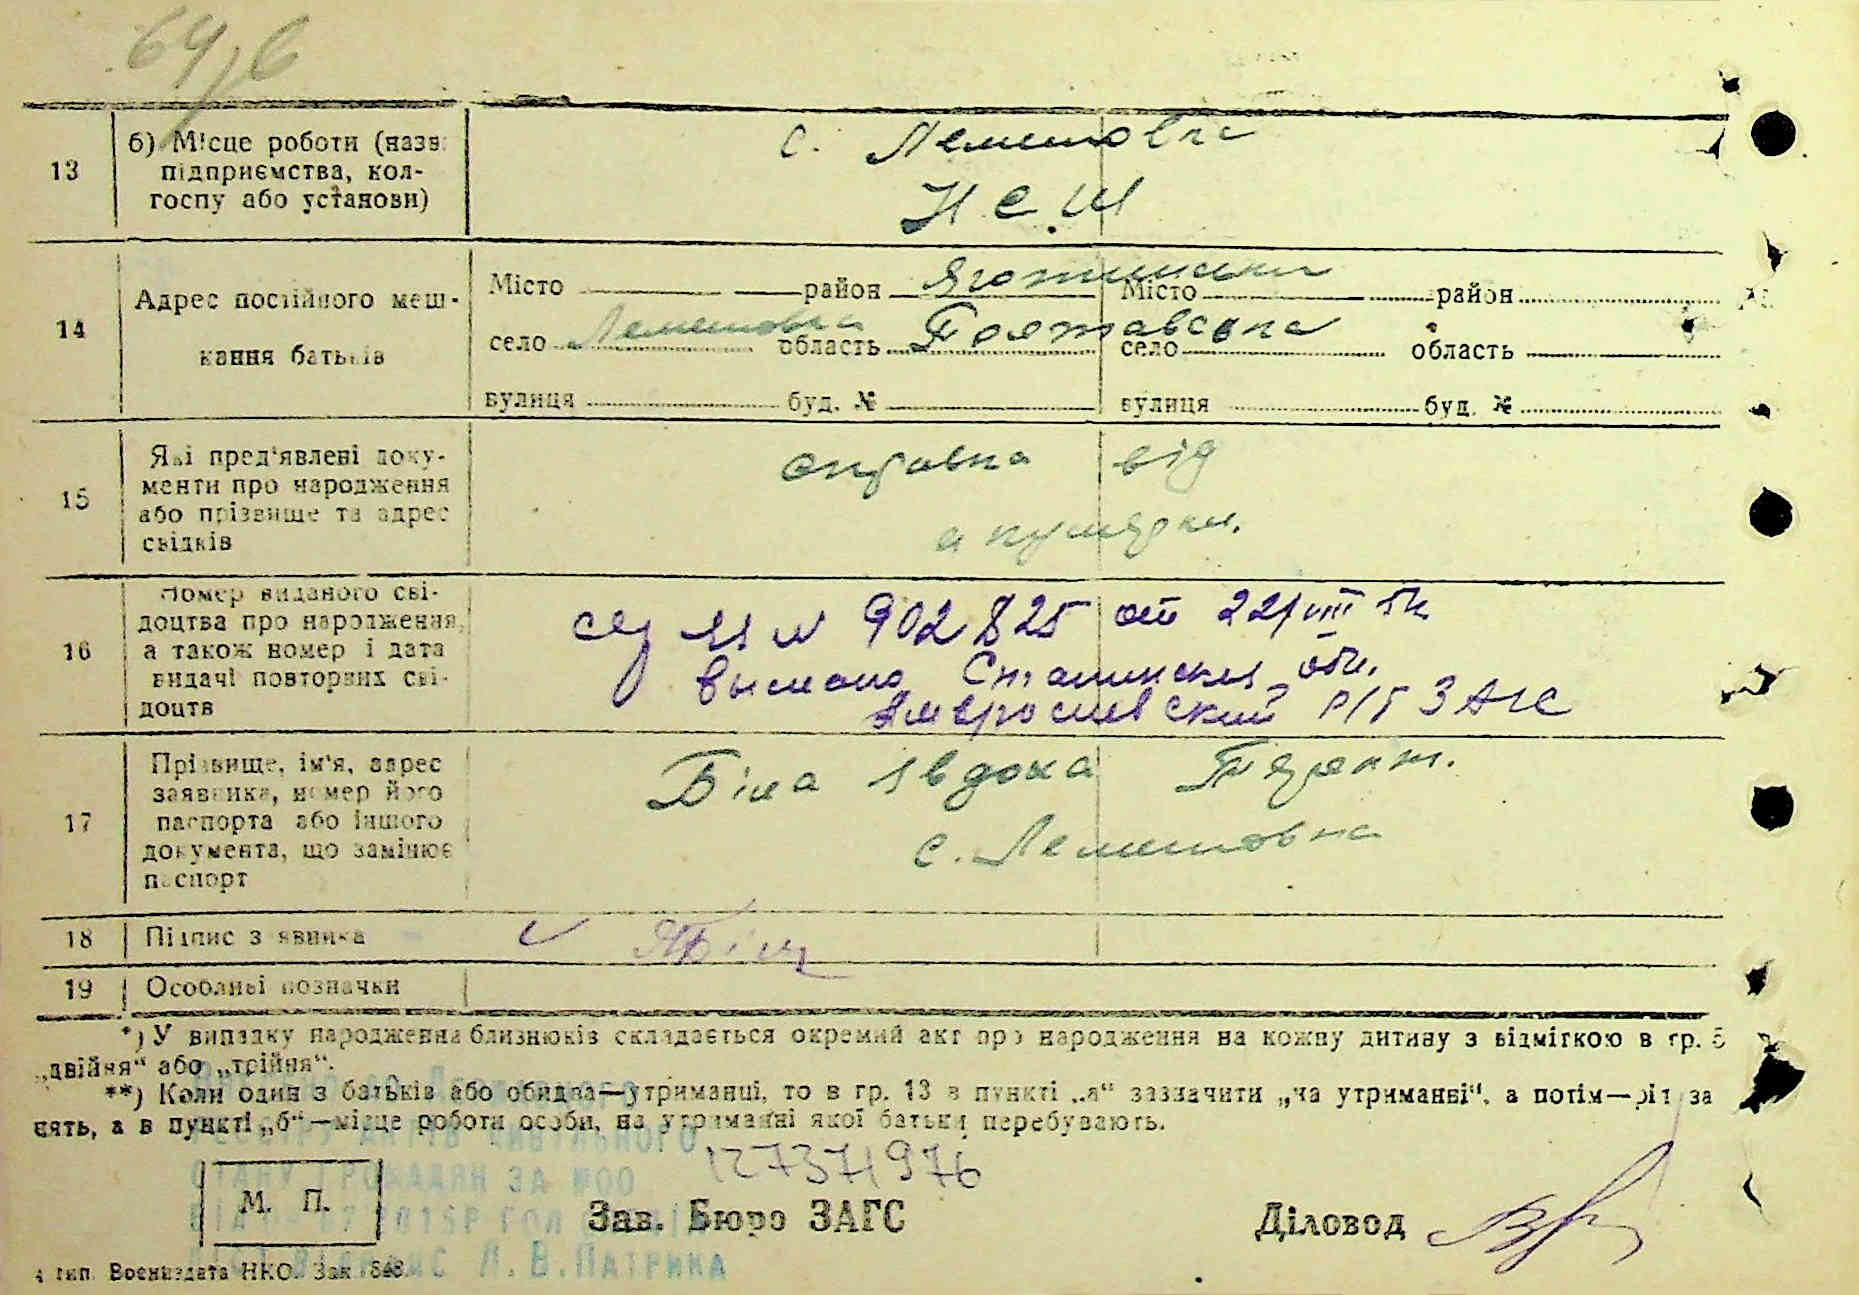 64/6
13
б) Місце роботи (назв
підприємства, кол-
госпу або установи)
с. Лемешовка
Н С Ш
14
Адрес постійного меш-
кання батьків
Місто район Яготинський Місто район
село Лемешовка область Полтавська село область
вулиця буд. № вулиця буд. №
15
Які пред'явлені доку-
менти про народження
або прізвище та адрес
свідків
справка від
акушерки.
16
Номер виданого сві-
доцтва про народження,
а також номер і дата
видачі повторних сві-
доцтв
902825 от 22/VIII
выслано Сталинская обл.
Амвросиевский Р/Б ЗАГС
17
Прізвище, ім'я, адрес
заявника, номер його
паспорта або іншого
документа, що замінює
паспорт
Біла Явдоха
с. Лемешовка
18
Підпис заявника
19
Особливі позначки
*) У випадку народження близнюків складається окремий акт про народження на кожну дитину з відміткою в гр. 5
„двійня“ або „трійня“.
**) Коли один з батьків або обидва—утриманці, то в гр. 13 в пункті „а“ зазначити „на утриманні“, а потім—рід за
нять, а в пункті „б“—місце роботи особи, на утриманні якої батьки перебувають.
СТАНУ ГРОМАДЯН ЗА №00
Л. В. ПАТРИКА
127371976
М. П.
Зав. Бюро ЗАГС
Діловод
4 тип. Воениздата НКО. Зак. 848.